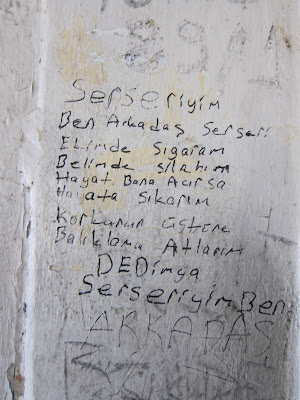 89/1
Serseriyim
Ben Arkadaş Serseri
Elimde Sigaram
Belimde silahım
Hayat Bana Acırsa
Hayata Sıkarım
Korkunun üstüne
Balıklama Atlarım
DEDimya
Serseriyim Ben
ARKADAŞ